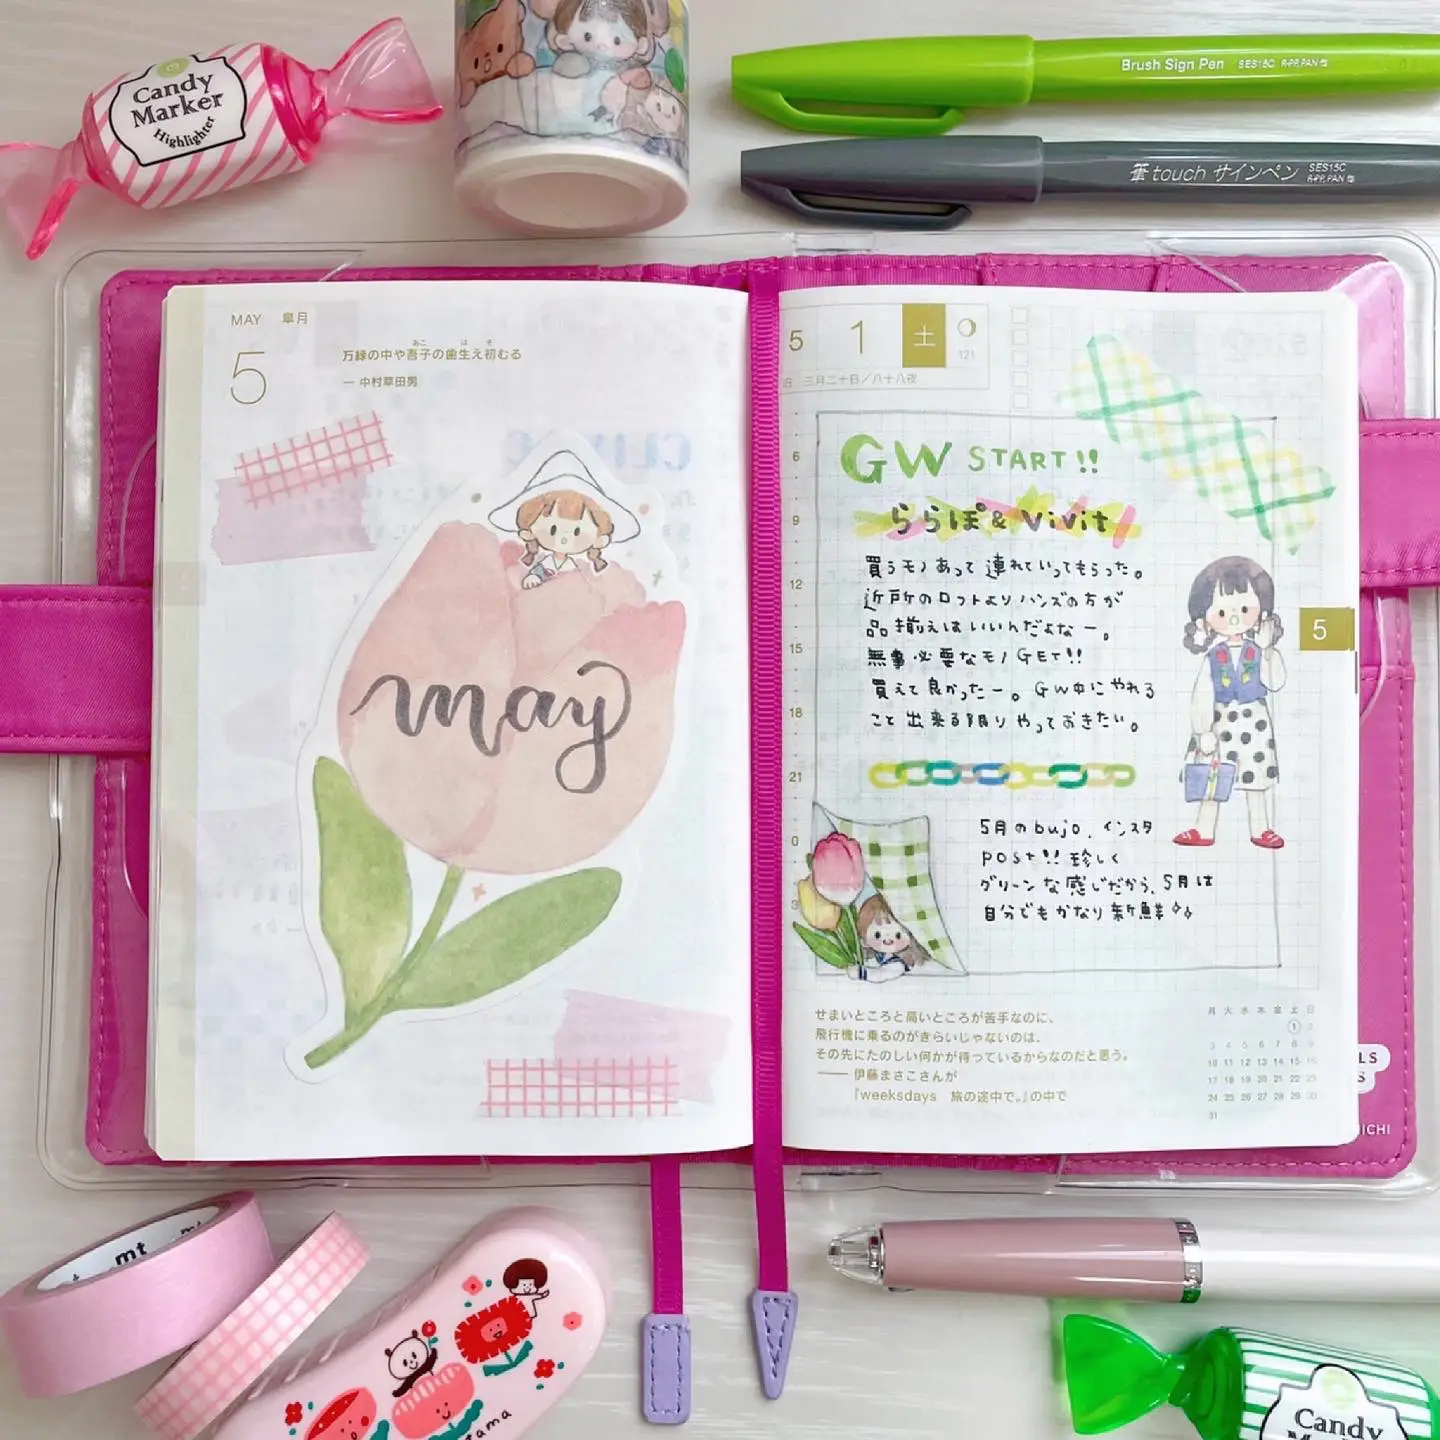 Candy
Marker
Highlighter
Brush Sign Pen SES15C R-PP, PAN
筆touch サインペン SES15C
R-PP, PAN
MAY 皐月
5
あこ は そ
万緑の中や吾子の歯生え初むる
— 中村草田男
may
5 1 土
121
三月二十日／八十八夜
GW START!!
6
ららぽ& Vivit
9
買うモノあって連れていってもらった。
12
近所のロフトよりハンズの方が
品揃えはいいんだよなー。
15
無事必要なモノGET!!
買えて良かったー。GW中にやれる
18
こと出来る限りやっておきたい。
21
5月のbujo、インスタ
0
post!! 珍しく
グリーンな感じだから、5月は
3
自分でもかなり新鮮
5
せまいところと高いところが苦手なのに、
飛行機に乗るのがきらいじゃないのは、
その先にたのしい何かが待っているからなのだと思う。
—— 伊藤まさこさんが
『weeksdays 旅の途中で。』の中で
月 火 水 木 金 土 日
1 2
3 4 5 6 7 8 9
10 11 12 13 14 15 16
17 18 19 20 21 22 23
24 25 26 27 28 29 30
31
LS
S
ICHI
mt
tama
Candy